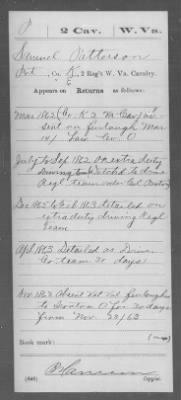 P | 2 Cav. | W. Va.
Samuel Patterson
Pvt, Co. K, 2 Reg't W. Va. Cavalry.
Appears on
Returns as follows:
Mar 1862 (Co K 2 W Cav)
sent on furlough Mar
14/ Law Co O
July to Sep 1862 on extra duty
driving team Detch'd to drive
Regl team order Col
Dec 1862 to Feb 1863 detailed on
extra duty driving Regl
Team
Apl 1863 Detailed as Driver
Co team 30 days
Nov 1863 Absent Vet Vol furlough
to Ironton O for 30 days
from Nov 29/63
Book mark:
(646)
Copyist.